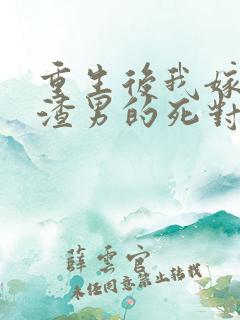 重生後我嫁
渣男的死對
薛雲官
未經同意禁止轉載